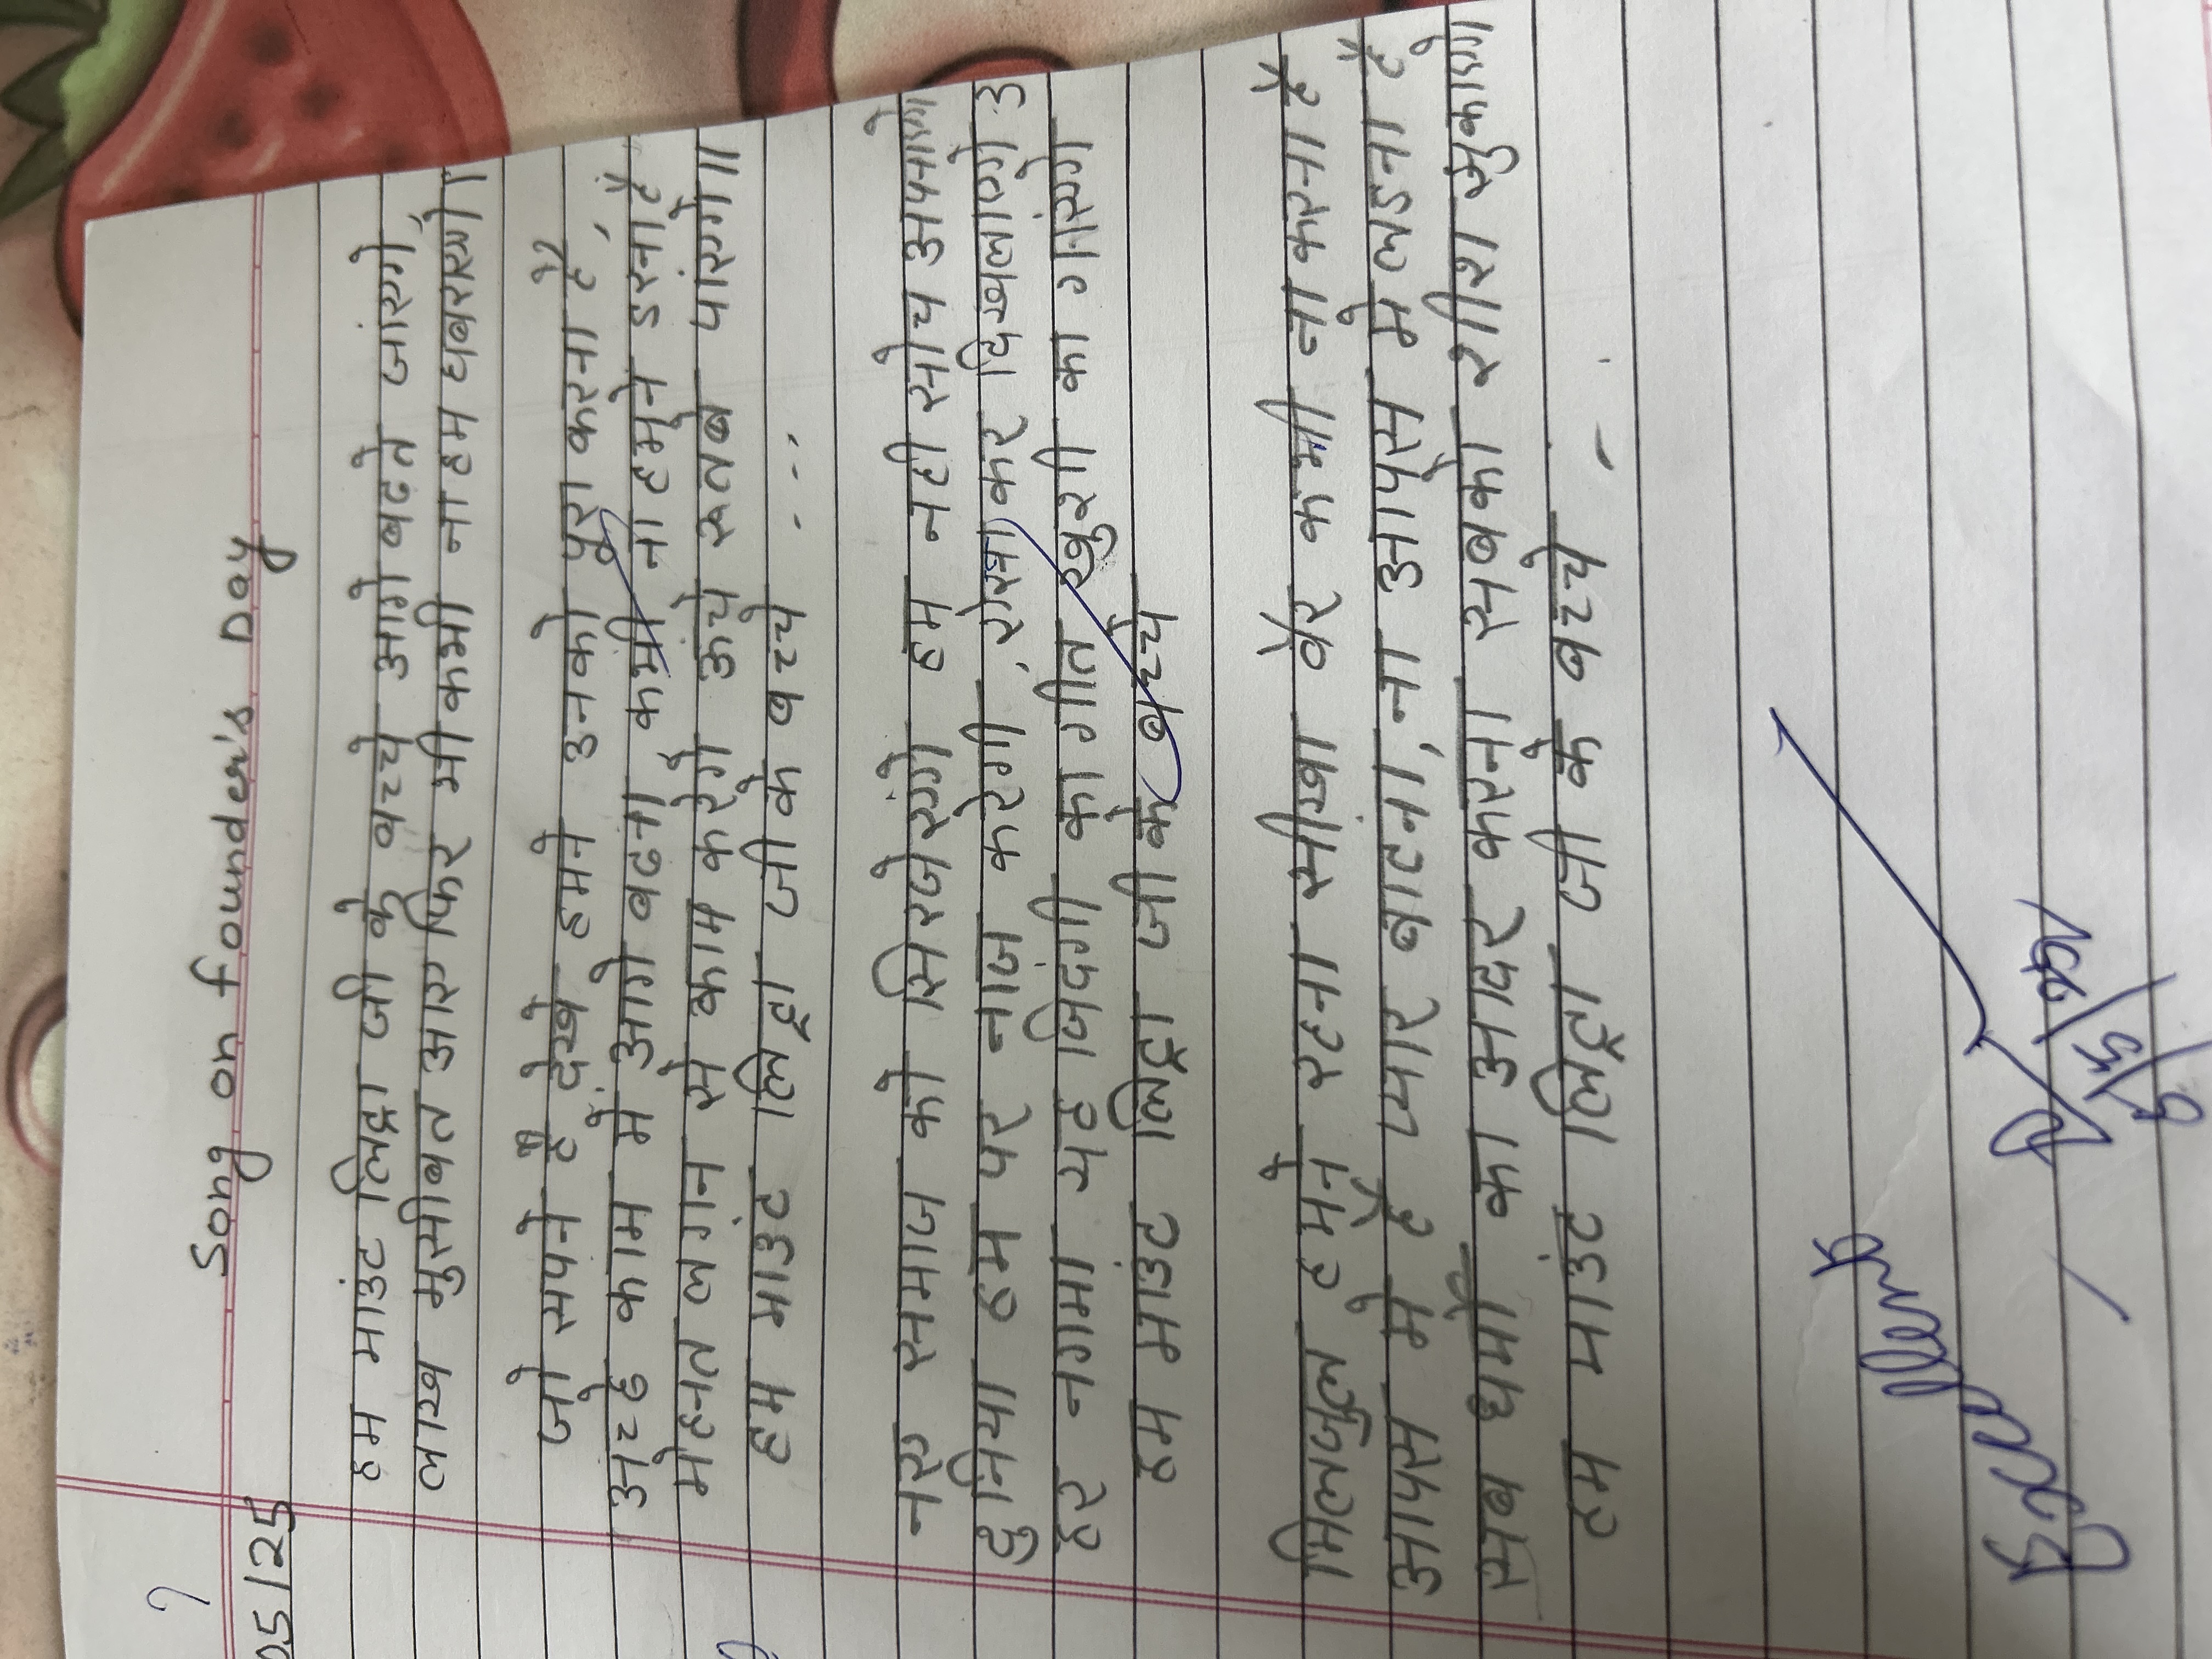 Song on founder's Day
05/25
हम माउंट लिट्रा जी के बच्चे आगे बढते जांएगे,
लाख मुसीबत आए फिर भी कभी ना हम घबराएगे॥
जो सपने है देखे हमने उनको पूरा करना है,
अच्छे काम में आगे बढना कभी ना हमने डरना है
मेहनत लगन से काम करेगे ऊंचे रूतबे पांएगे॥
हम माउंट लिट्रा जी के बच्चे - - -
नए समाज को सिरजेएगे हम नही सोच अपनाएंगे
दुनिया हम पर नाज करेगी, ऐसा कर दिखलाएगे 3
हर नगमा यह जिदंगी का गीत खुशी का गांएगे
हम माउंट लिट्रा जी के बच्चे
मिलजुल हमने रहना सीखा वैर कभी ना करना है
आपस में है प्यार बाटना, ना आपस मे लडना है
सब धर्मो का आदर करना सबका शीश झुकाएंगे
हम माउंट लिट्रा जी के बच्चे - -